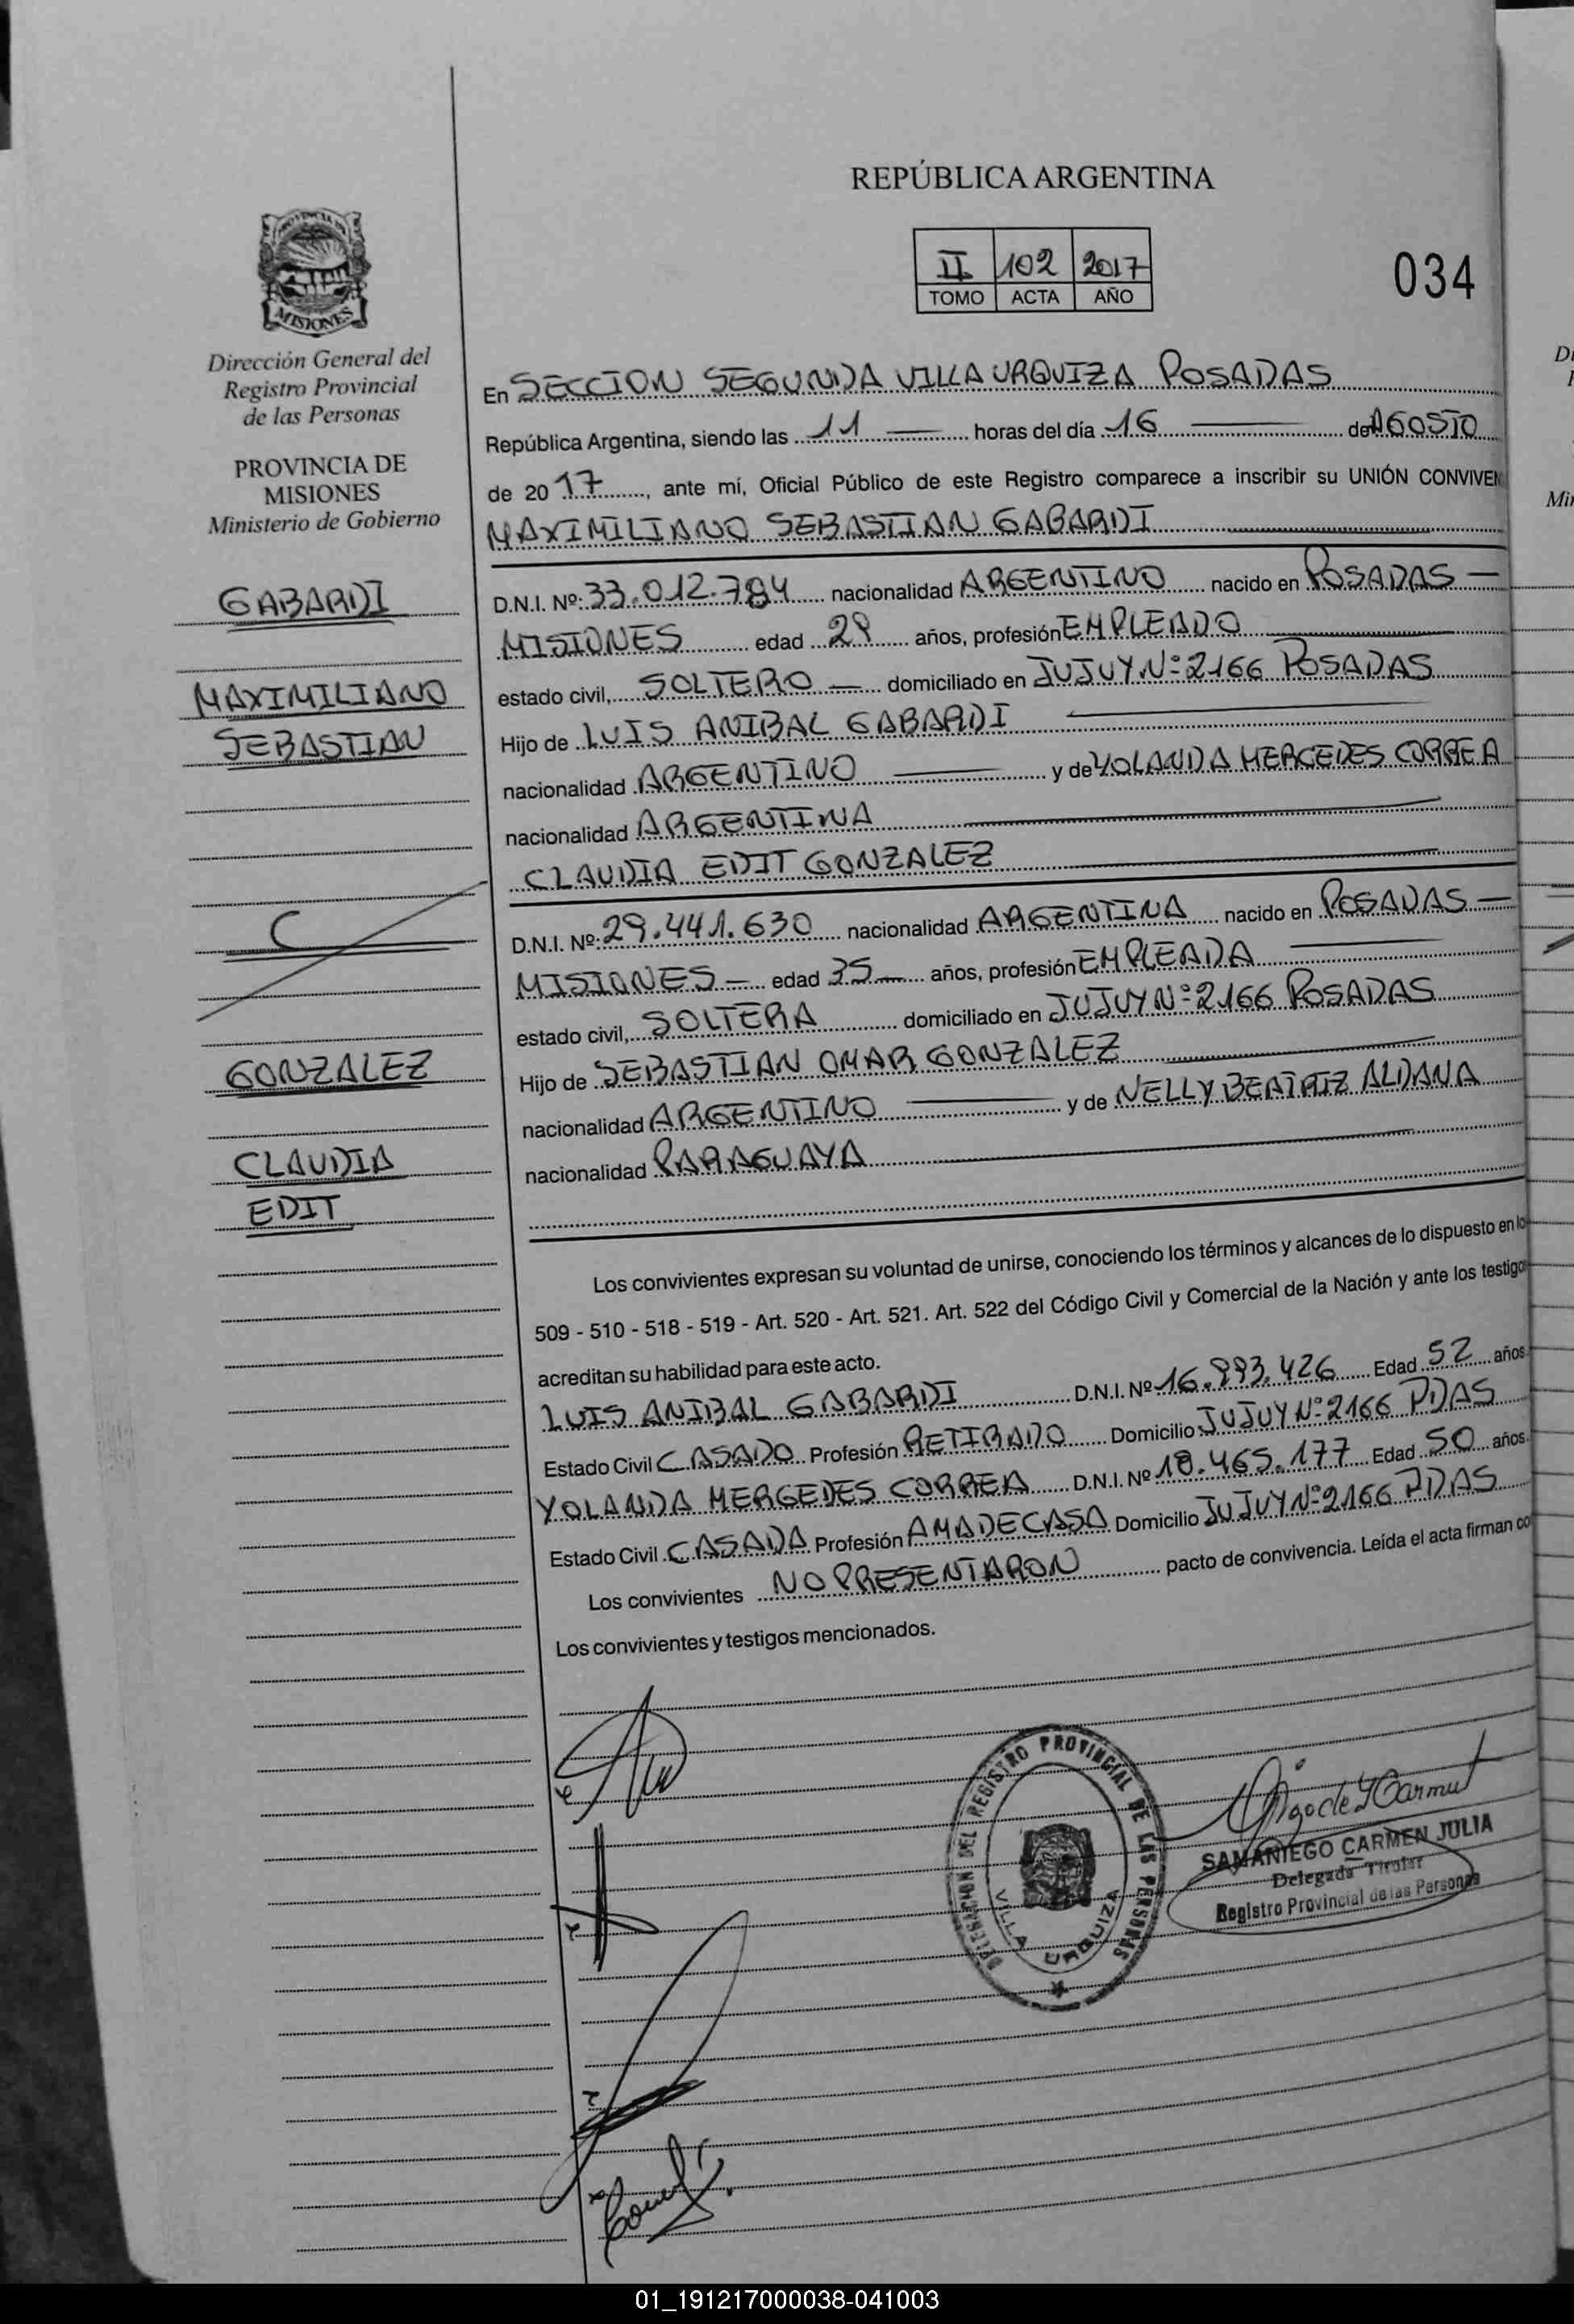 REPÚBLICA ARGENTINA
II 102 2017
TOMO ACTA AÑO
034
PROVINCIA DE
MISIONES
Dirección General del
Registro Provincial
de las Personas
PROVINCIA DE
MISIONES
Ministerio de Gobierno
GABARDI
MAXIMILIANO
SEBASTIAN
C
GONZALEZ
CLAUDIA
EDIT
En SECCION SEGUNDA VILLA URQUIZA POSADAS
República Argentina, siendo las 11 horas del día 16 de AGOSTO
de 20 17, ante mí, Oficial Público de este Registro comparece a inscribir su UNIÓN CONVIVEN
MAXIMILIANO SEBASTIAN GABARDI
D.N.I. Nº: 33.012.784 nacionalidad ARGENTINO nacido en POSADAS —
MISIONES edad 29 años, profesión EMPLEADO
estado civil, SOLTERO — domiciliado en JUJUY Nº 2166 POSADAS
Hijo de LUIS ANIBAL GABARDI
nacionalidad ARGENTINO y de YOLANDA MERCEDES CORREA
nacionalidad ARGENTINA
CLAUDIA EDIT GONZALEZ
D.N.I. Nº: 29.441.630 nacionalidad ARGENTINA nacido en POSADAS —
MISIONES — edad 35 años, profesión EMPLEADA
estado civil, SOLTERA domiciliado en JUJUY Nº 2166 POSADAS
Hijo de SEBASTIAN OMAR GONZALEZ
nacionalidad ARGENTINO y de NELLY BEATRIZ ALDANA
nacionalidad PARAGUAYA
Los convivientes expresan su voluntad de unirse, conociendo los términos y alcances de lo dispuesto en lo
509 - 510 - 518 - 519 - Art. 520 - Art. 521. Art. 522 del Código Civil y Comercial de la Nación y ante los testigo
acreditan su habilidad para este acto.
LUIS ANIBAL GABARDI D.N.I. Nº 16.993.426 Edad 52 años
Estado Civil CASADO Profesión RETIRADO Domicilio JUJUY Nº 2166 PDAS
YOLANDA MERCEDES CORREA D.N.I. Nº 18.465.177 Edad 50 años
Estado Civil CASADA Profesión AMA DE CASA Domicilio JUJUY Nº 2166 PDAS
Los convivientes NO PRESENTARON pacto de convivencia. Leída el acta firman co
Los convivientes y testigos mencionados.
DELEGACION DEL REGISTRO PROVINCIAL DE LAS PERSONAS
VILLA URQUIZA
SAMANIEGO CARMEN JULIA
Delegada Titular
Registro Provincial de las Personas
01_191217000038-041003